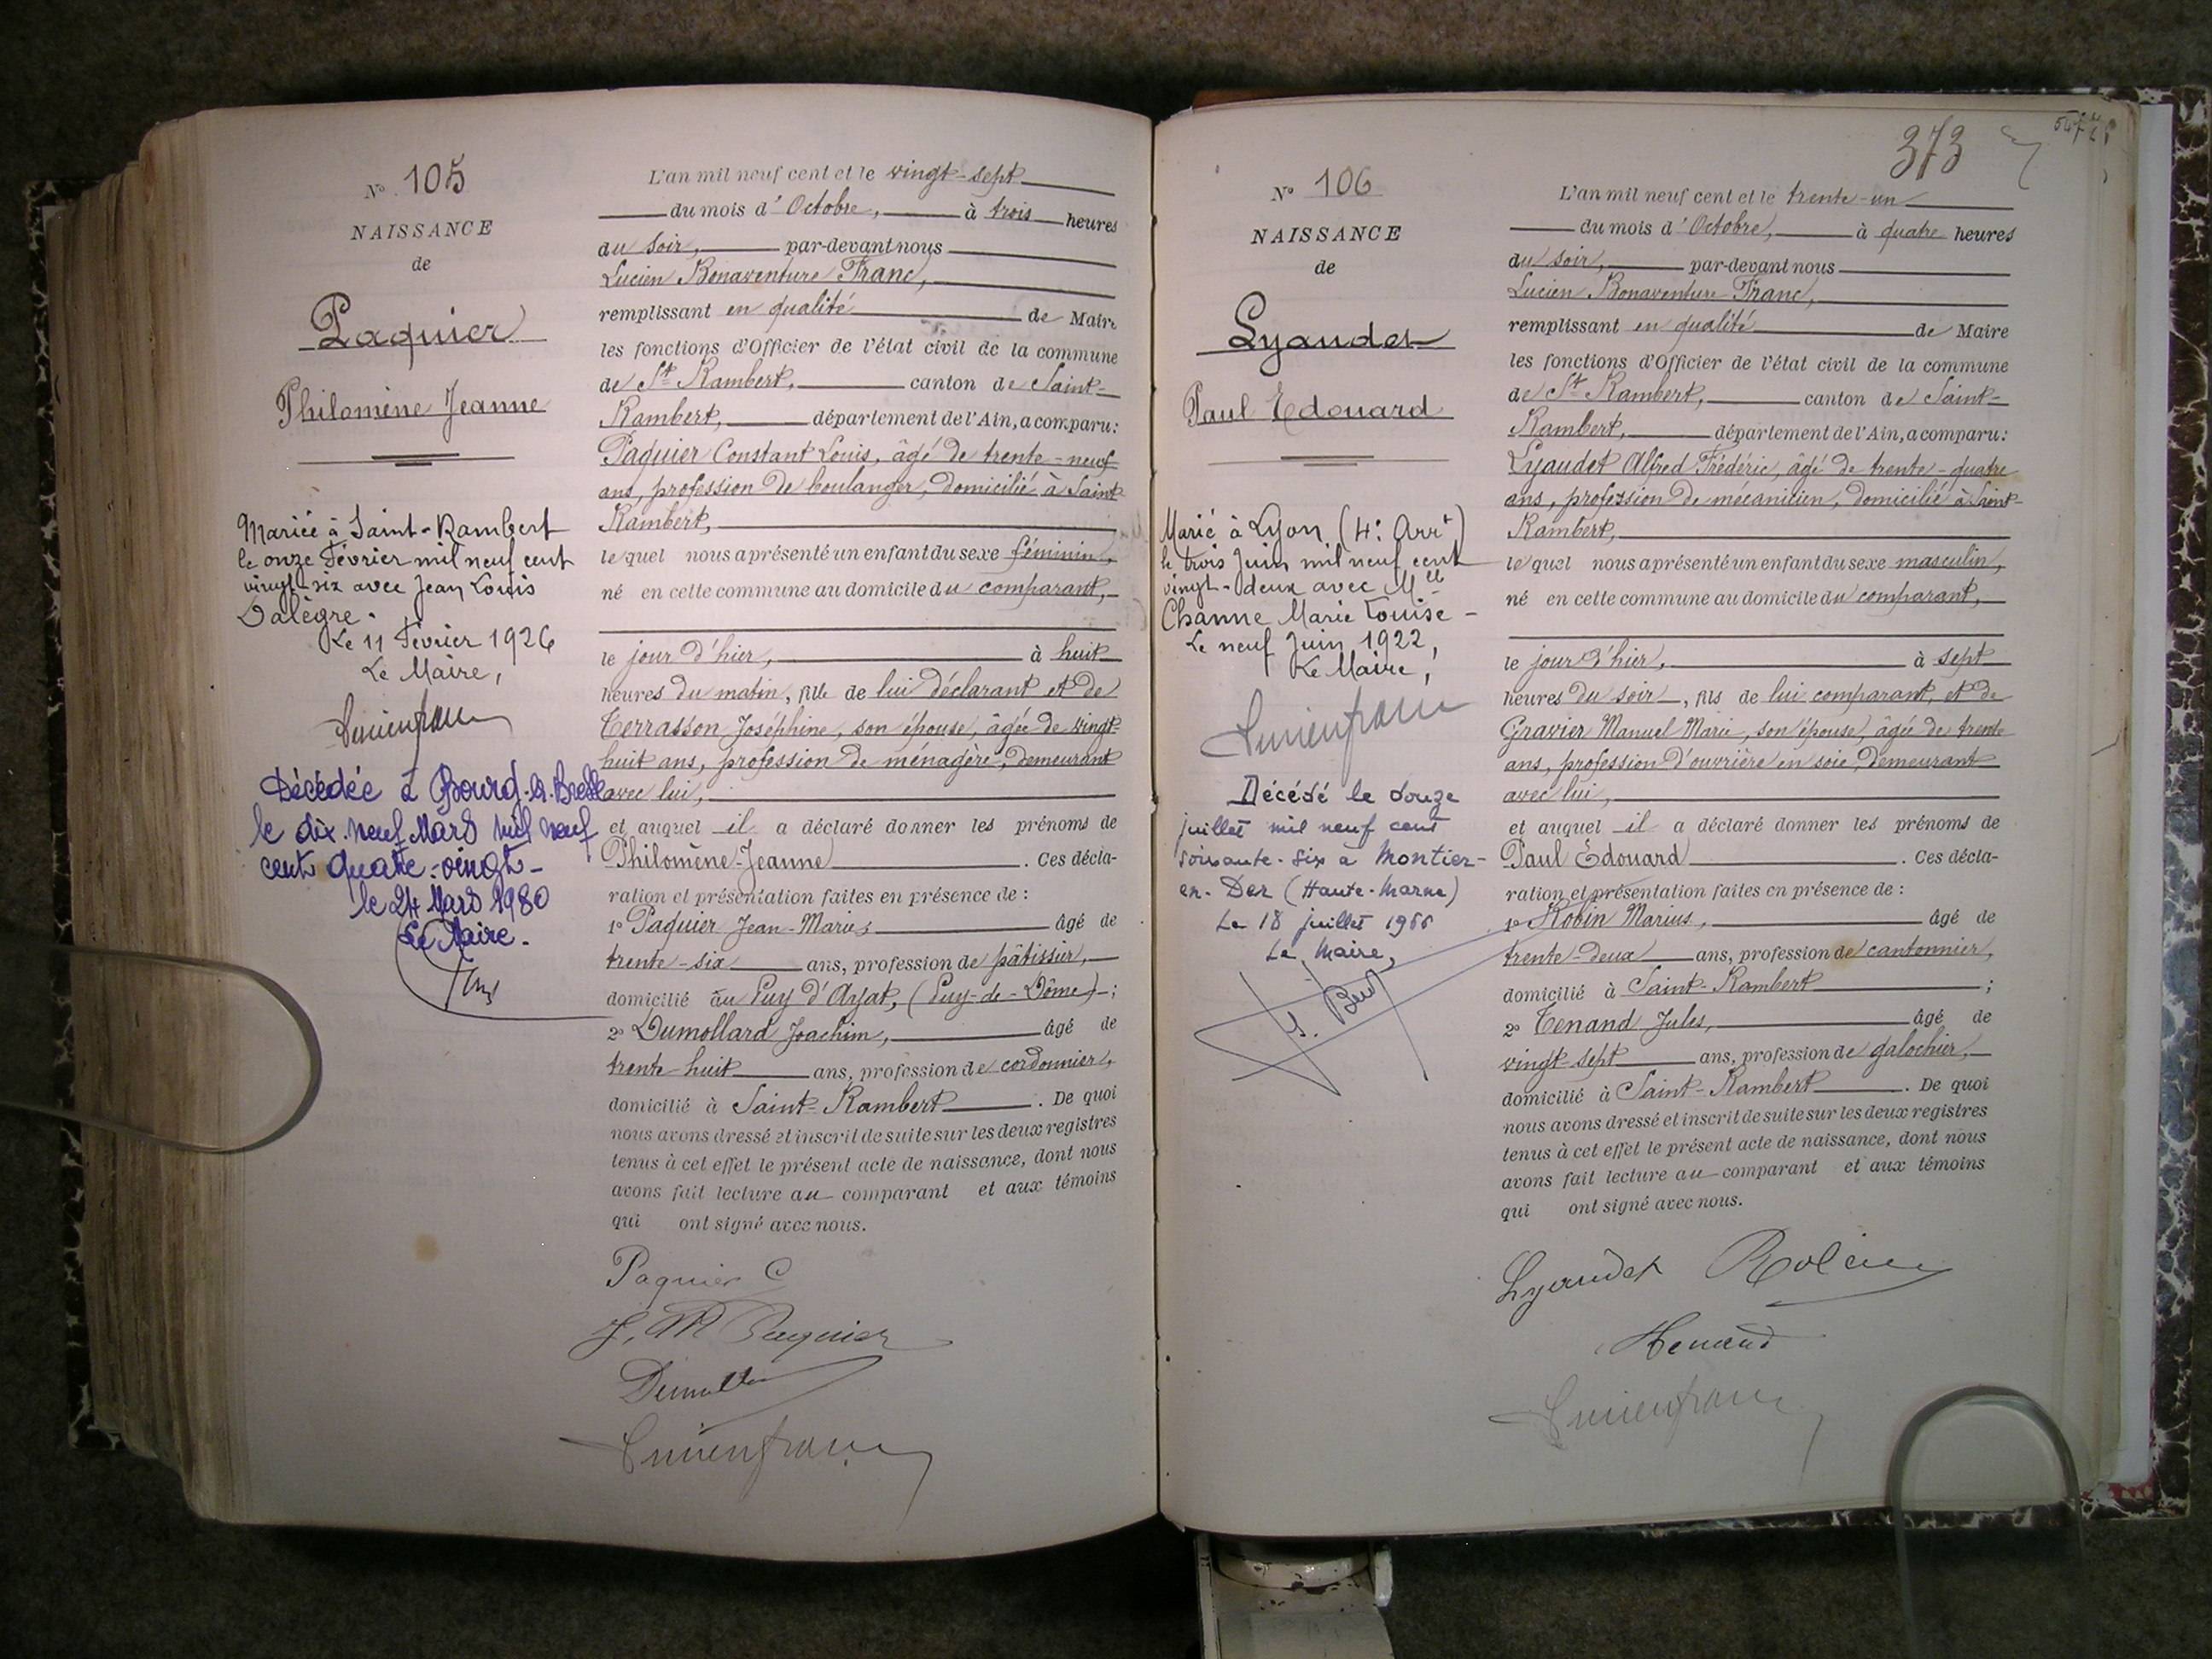 N° 105
NAISSANCE
de
Paquier
Philomène Jeanne
Mariée à Saint-Rambert
le onze Février mil neuf cent
vingt-six avec Jean Louis
Dalègre.
Le 11 Février 1926
Le Maire,
Lucien franc
Décédée à Bourg-en-Bresse
le dix-neuf Mars mil neuf
cent quatre-vingt-
le 24 Mars 1980
Le Maire.
L'an mil neuf cent et le vingt-sept
du mois d'Octobre, à trois heures
du soir, par-devant nous
Lucien Bonaventure Franc,
remplissant en qualité de Maire
les fonctions d'Officier de l'état civil de la commune
de St Rambert, canton de Saint-
Rambert, département de l'Ain, a comparu:
Paquier Constant Louis, âgé de trente-neuf
ans, profession de boulanger, domicilié à Saint-
Rambert,
le quel nous a présenté un enfant du sexe féminin,
né en cette commune au domicile du comparant,
le jour d'hier, à huit
heures du matin, fille de lui déclarant et de
Terrasson Joséphine, son épouse, âgée de vingt-
huit ans, profession de ménagère, demeurant
avec lui,
et auquel il a déclaré donner les prénoms de
Philomène-Jeanne. Ces décla-
ration et présentation faites en présence de :
1° Paquier Jean-Marie, âgé de
trente-six ans, profession de pâtissier,
domicilié au Puy d'Ayat, (Puy-de-Dôme) ;
2° Dumollard Joachim, âgé de
trente-huit ans, profession de cordonnier,
domicilié à Saint-Rambert. De quoi
nous avons dressé et inscrit de suite sur les deux registres
tenus à cet effet le présent acte de naissance, dont nous
avons fait lecture au comparant et aux témoins
qui ont signé avec nous.
Paquier C
J. M Paquier
Lucien franc
373
N° 106
NAISSANCE
de
Lyaudet
Paul Edouard
Marié à Lyon (4e Arrt)
le trois Juin mil neuf cent
vingt-deux avec Mlle
Channe Marie Louise -
Le neuf Juin 1922,
Le Maire,
Lucien franc
Décédé le douze
juillet mil neuf cent
soixante-six à Montier-
en-Der (Haute-Marne)
Le 18 juillet 1966
Le Maire,
L'an mil neuf cent et le trente-un
du mois d'Octobre, à quatre heures
du soir, par-devant nous
Lucien Bonaventure Franc,
remplissant en qualité de Maire
les fonctions d'Officier de l'état civil de la commune
de St Rambert, canton de Saint-
Rambert, département de l'Ain, a comparu:
Lyaudet Alfred Frédéric, âgé de trente-quatre
ans, profession de mécanicien, domicilié à Saint-
Rambert,
le quel nous a présenté un enfant du sexe masculin,
né en cette commune au domicile du comparant,
le jour d'hier, à sept
heures du soir, fils de lui comparant, et de
Gravier Manuel Marie, son épouse, âgée de trente
ans, profession d'ouvrière en soie, demeurant
avec lui,
et auquel il a déclaré donner les prénoms de
Paul Édouard. Ces décla-
ration et présentation faites en présence de :
1° Robin Marius, âgé de
trente-deux ans, profession de cantonnier,
domicilié à Saint-Rambert ;
2° Tenand Jules, âgé de
vingt-sept ans, profession de galochier,
domicilié à Saint-Rambert. De quoi
nous avons dressé et inscrit de suite sur les deux registres
tenus à cet effet le présent acte de naissance, dont nous
avons fait lecture au comparant et aux témoins
qui ont signé avec nous.
Lyaudet Robin
Tenand
Lucien franc